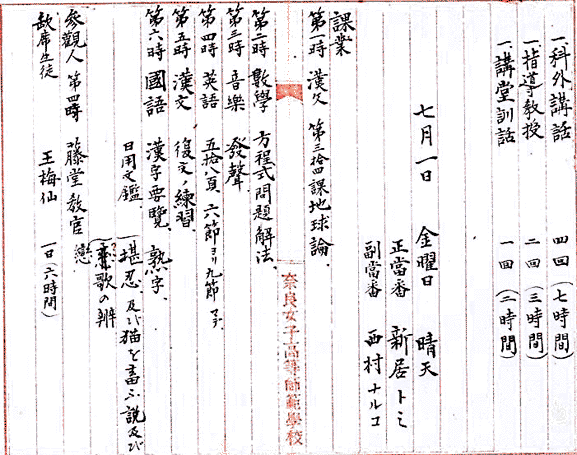 一、科外講話 四回（七時間）
一、指導教授 二回（三時間）
一、講堂訓話 一回（二時間）
七月一日 金曜日 晴天
正當番 新居トミ
副當番 西村ナルコ
課業
第一時 漢文 第三拾四課地球論、
第二時 數學 方程式問題解法、
第三時 音樂 發聲、
第四時 英語 五拾八頁六節ヨリ九節マデ、
第五時 漢文 復文ノ練習、
第六時 國語 漢字要覽、熟字、
日用文鑑、（堪忍、及び猫を畜ふ説及び
戀歌の辨
戀
參觀人 第四時 藤堂教官
缺席生徒 王梅仙 一日（六時間）
奈良女子高等師範學校